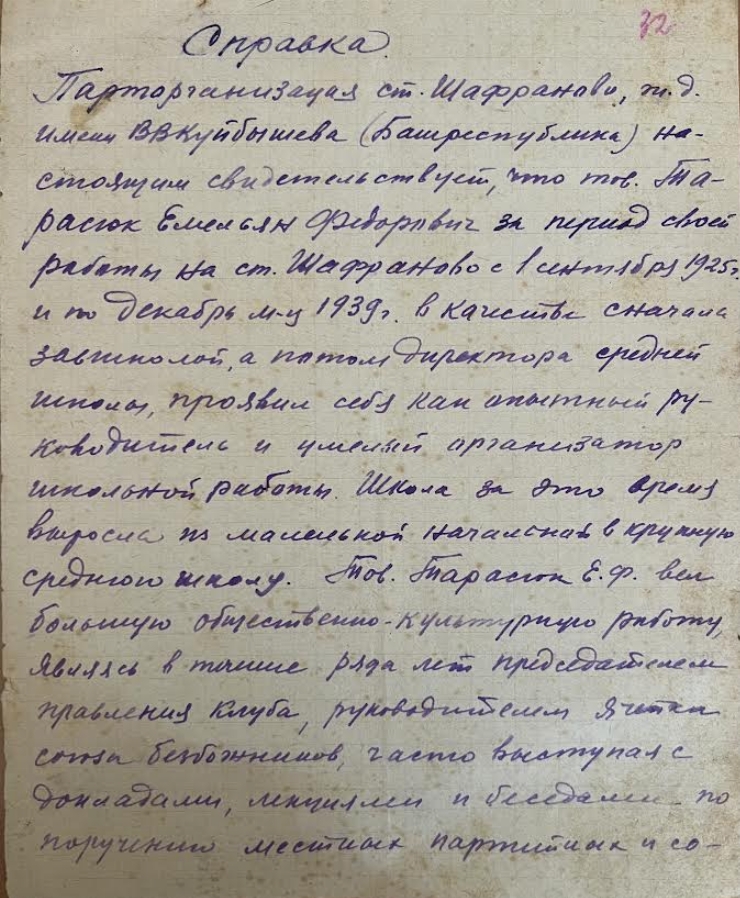 32
Справка.
Парторганизация ст. Шафраново, ж.д.
имени ВВКуйбышева (Башреспублика) на-
стоящим свидетельствует, что тов. Та-
расюк Емельян Федорович за период своей
работы на ст. Шафраново с 1 сентября 1925г.
и по декабрь м-ц 1939г. в качестве сначала
завшколой, а потом директора средней
школы, проявил себя как опытный ру-
ководитель и умелый организатор
школьной работы. Школа за это время
выросла из маленькой начальной в крупную
среднюю школу. Тов. Тарасюк Е.Ф. вел
большую общественно-культурную работу,
являясь в течение ряда лет председателем
правления клуба, руководителем ячейки
союза безбожников, часто выступая с
докладами, лекциями и беседами по
поручению местных партийных и со-